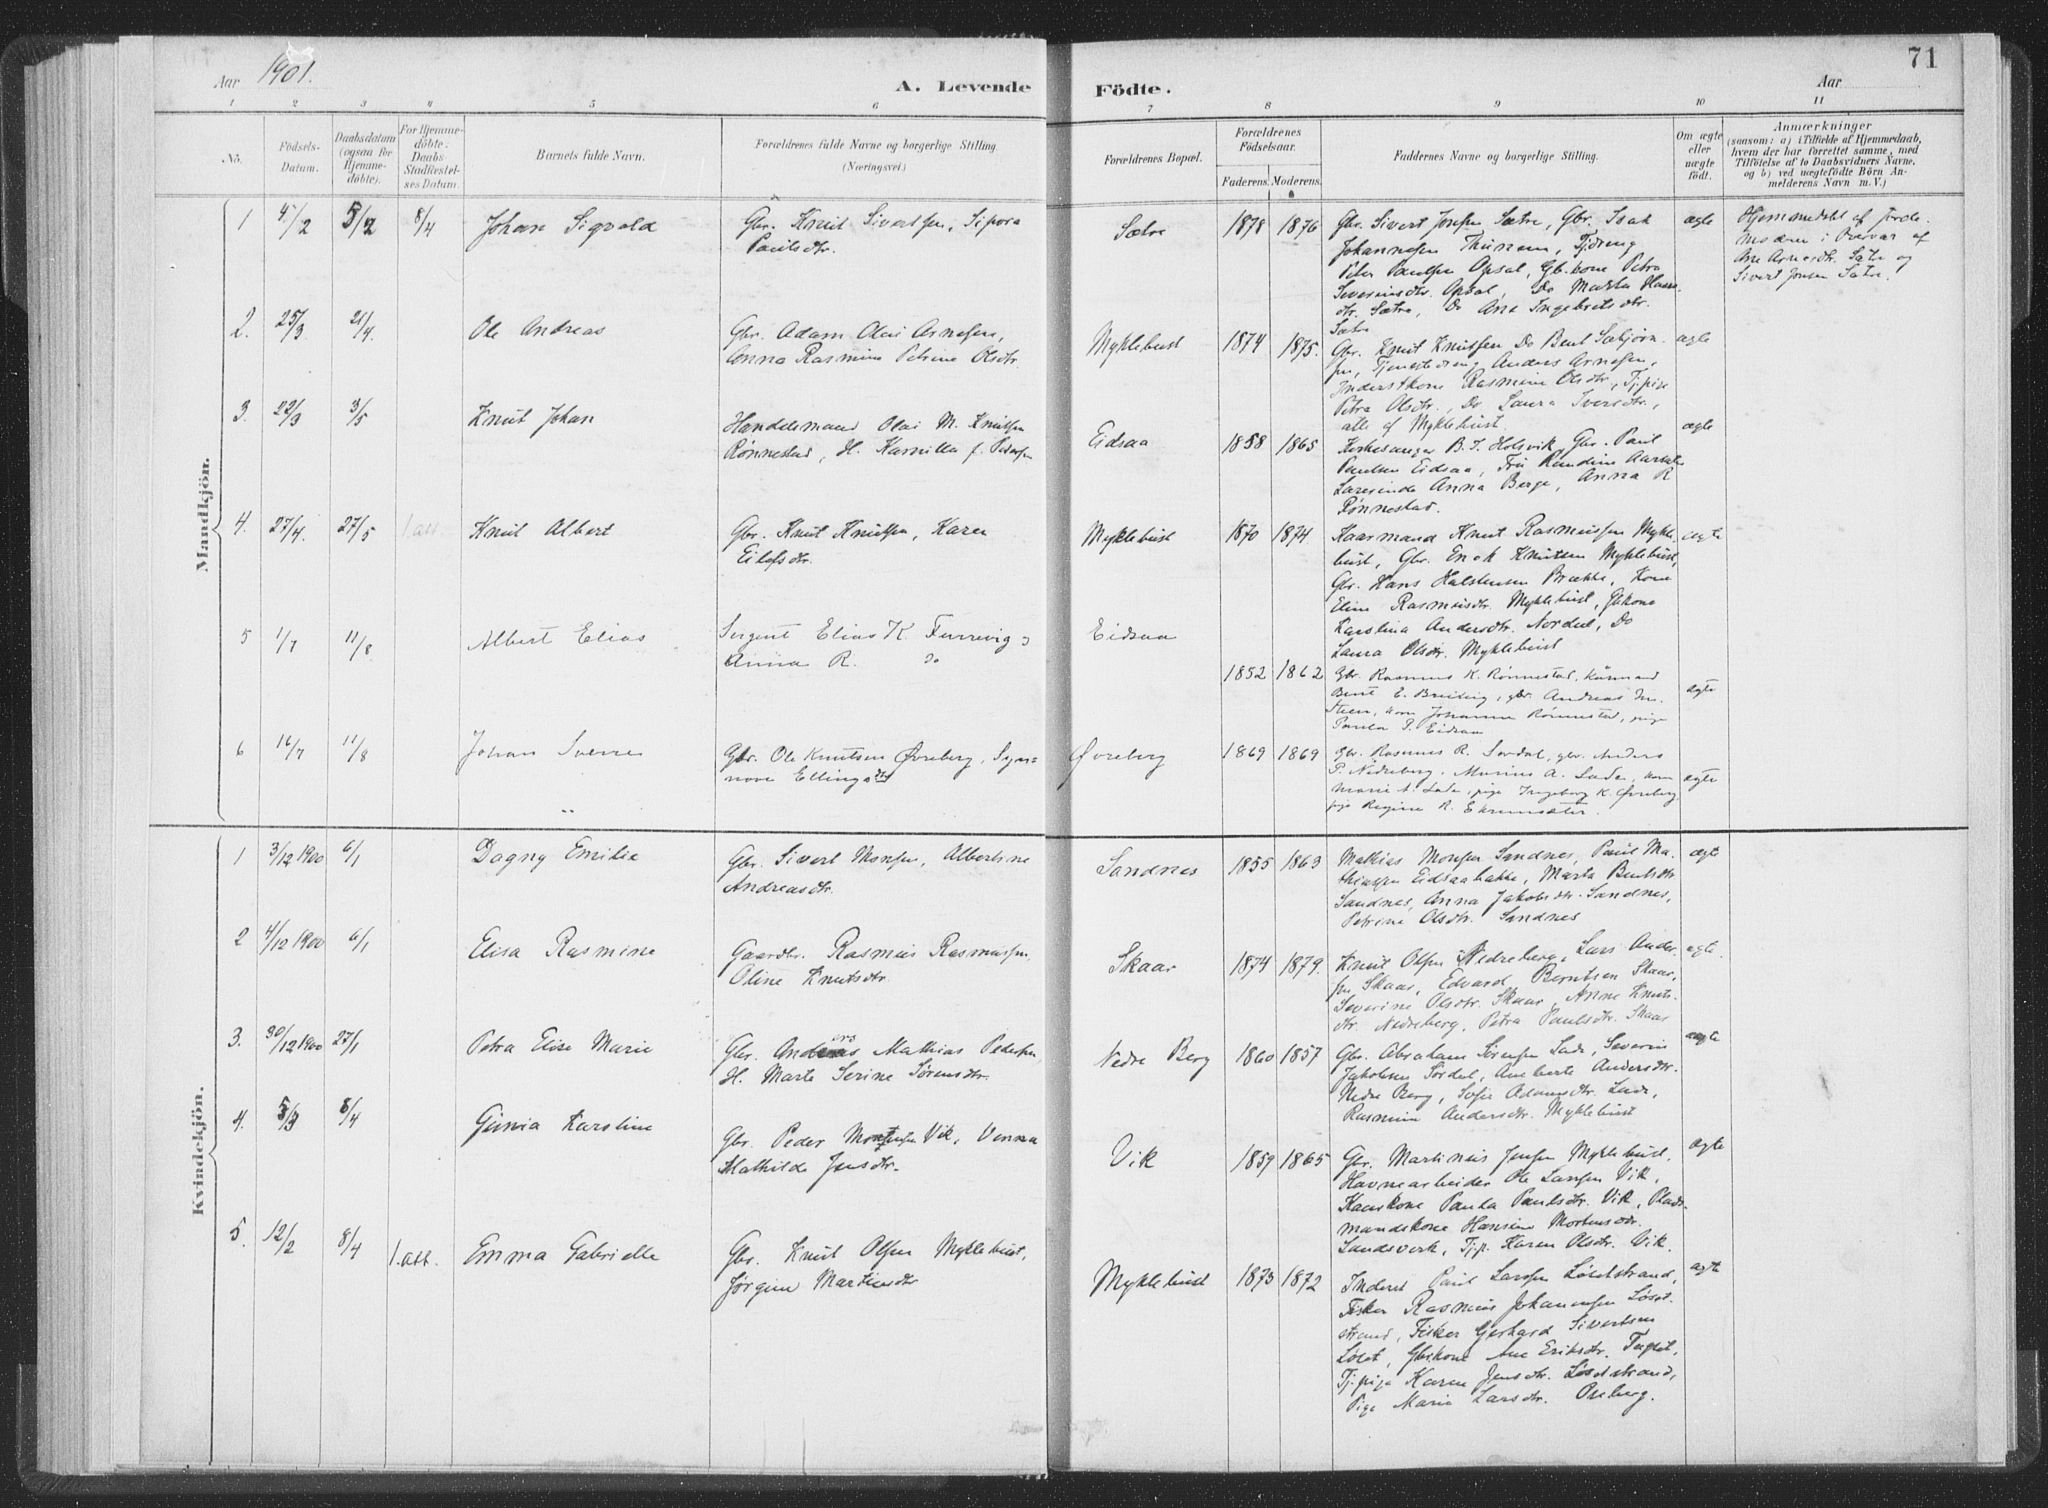 Aar 1901.
A. Levende
Födte.
Aar
71
1 2 3 4 5 6 7 8 9 10 11
No.
Födsels-
Datum.
Daabsdatum
(ogsaa for
Hjemme-
döbte).
For Hjemme-
döbte:
Daabs-
Stadfæstel-
ses Datum.
Barnets fulde Navn.
Forældrenes fulde Navne og borgerlige Stilling
(Næringsvei.)
Forældrenes Bopæl.
Forældrenes
Födselsaar.
Faderens. Moderens.
Faddernes Navne og borgerlige Stilling.
Om ægte
eller
uægte
födt.
Anmærkninger
(saasom: a) i Tilfælde af Hjemmedaab,
hvem der har forrettet samme, med
Tilföielse af to Daabsvidners Navne,
og b) ved uægtefödte Börn An-
melderens Navn m. V.)
Mandkjön.
1 4/2 5/2 8/4 Johan Sigvald
Gbr. Knut Sivertsen, Sipora
Paulsdtr.
Sætre 1878 1876
Gbr. Sivert Jonsen Sætre, Gbr. Isak
Johannesen Thunem, Tjdreng
Peter Paulsen Opsal, Gb.kone Petra
Severinsdtr. Opsal, Do Marta Hans-
dtr. Sætre, Do Ane Ingebretsdtr.
Sætre
ægte
Hjemmedøbt af Jorde-
moderen i af
Ane Arnesdtr. Sætre og
Sivert Jonsen Sætre.
2. 25/3 21/4. Ole Andreas
Gbr. Adam Olai Arnesen,
Anna Rasmine Petrine Olsdtr.
Myklebust 1874 1875.
Gbr. Knut Knutsen Do Bent Sæbjørn-
sen, Tjenestedreng Anders Arnesen,
Inderstkone Rasmine Olsdtr., Tj.pige
Petra Olsdtr., Do Laura Iversdtr.,
alle af Myklebust.
ægte
3. 22/3 3/5 Knut Johan
Handelsmand Olai M. Knutsen
Rønnestad, H. Kamilla f. Pedersen
Eidsaa 1858 1865
Kirkesanger B. J. Holsvik, Gbr. Paul
Paulsen Eidsaa, Fru Randine Aarsæter
Lærerinde Anna Berge, Anna R
Rønnestad.
ægte
4. 27/4. 27/5 1. att. Knut Albert
Gbr. Knut Knutsen, Karen
Eilefsdtr.
Myklebust 1870 1874
Kaarmand Knut Rasmussen Mykle-
bust, Gbr. Enok Knutsen Myklebust,
Gbr. Hans Halstensen Brække, Kone
Eline Rasmusdtr. Myklebust, Gbkone
Karolina Andersdtr. Nordal, Do
Laura Olsdtr. Myklebust
ægte
5 1/7 11/8 Albert Elias
Sergent Elias K. Furrevig og
Anna R. do
Eidsaa
1852 1862
Gbr. Rasmus K. Rønnestad, kårmand
Bent E. Breiteig, gbr. Andreas M.
Steen, kone Johanne Rønnestad, pige
Paula P. Eidsaa
ægte
6 16/7 11/8 Johan Sverre
Gbr. Ole Knutsen Øvreberg, Syn-
nøve Ellingsdtr
Øvreberg 1869 1869
Gbr. Rasmus R. Sørdal, gbr. Anders
P. Nedreberg, Marius A. Lade, kone
Marie A. Lade, pige Ingeborg K. Øvreberg
pige Regine R. Ekremsæter.
ægte
Kvindekjön.
1 3/12 1900 6/1 Dagny Emilie
Gbr. Sivert Monsen, Albertine
Andreasdtr.
Sandnes 1855 1863
Mathias Monsen Sandnes, Paul Ma-
thiassen Eidsaabakke, Marta Bentsdtr
Sandnes, Anna Jakobsdtr. Sandnes,
Petrine Olsdtr. Sandnes
ægte
2 4/12 1900 6/1 Elisa Rasmine
Gaardbr. Rasmus Rasmussen,
Oline Knutsdtr.
Skaar 1874 1879.
Knut Olsen Nedreberg, Lars Ander-
sen Skaar, Edvard Berntsen Skaar,
Severine Olsdtr. Skaar, Anne Knuts-
dtr. Nedreberg, Petra Paulsdtr. Skaar
ægte.
3. 30/12 1900 27/1 Petra Elise Marie
Gbr. Anders Mathias Pedersen,
H. Marte Serine Sørensdtr.
Nedre Berg 1860 1857
Gbr. Abraham Sørensen Lade, Severin
Jakobsen Sørdal, Ane Berte Andersdtr.
Nedre Berg, Sofie Adamsdtr. Lade,
Rasmine Andersdtr. Myklebust
ægte
4. 5/3 8/4 Gunia Karoline
Gbr. Peder Mortensen Vik, Venna
Mathilde Jensdtr.
Vik 1859 1865
Gbr. Martinus Jensen Myklebust,
Havnearbeider Ole Larsen Vik,
Kaarkone Paula Paulsdtr. Vik, Plads-
mandskone Hansine Mortensdtr.
Landsverk, Tj.p. Karen Olsdtr. Vik.
ægte
5. 12/2 8/4 1. att. Emma Gabrielle
Gbr. Knut Olsen Myklebust,
Jørgine Martinsdtr
Myklebust 1873 1872
Inderst Paul Larsen Løsetstrand,
Fisker Rasmus Johannesen Løset-
strand, Fisker Gerhard Sivertsen
Løset, Gbrkone Ane Eriksdtr.
Tj.pige Karen Jensdtr. Løsetstrand,
Pige Marie Larsdtr. Øreberg.
ægte